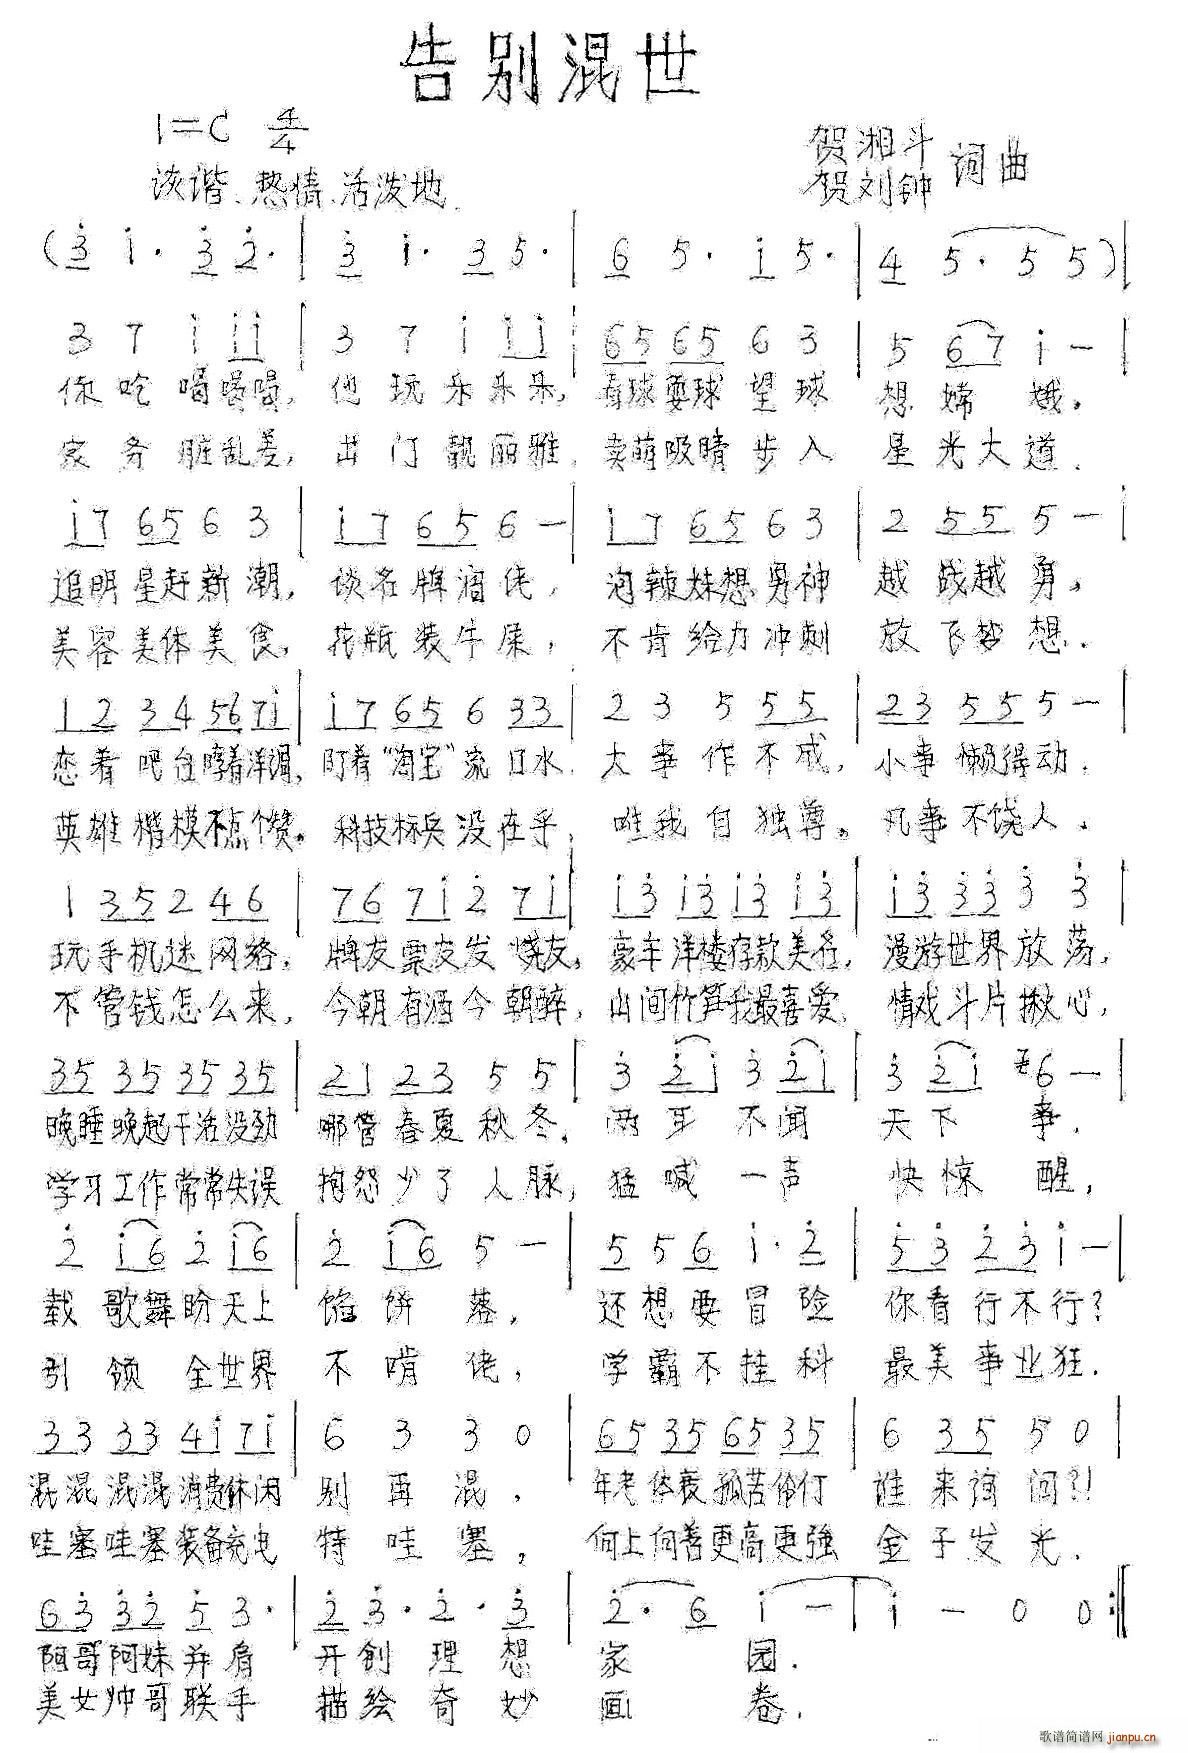 告别混世
1=C 4/4
贺湘斗
诙谐、热情、活泼地
贺刘钟 词曲
(3 i· 3 2· | 3 i· 3 5· | 6 5· i 5· | 4 5· 5 5) |
3 7 i i i | 3 7 i i i | 65 65 6 3 | 5 67 i — |
你吃喝喝喝，他玩乐乐乐，看球耍球望球想嫦娥。
家务脏乱差，出门靓丽雅，卖萌吸睛步入星光大道．
i7 65 6 3 | i7 65 6 — | i7 65 6 3 | 2 55 5 — |
追明星赶新潮，谈名牌酒佬，泡辣妹想男神越战越勇。
美容美体美食，花瓶装牛屎，不肯给力冲刺放飞梦想．
12 34 56 7i | i7 65 6 33 | 2 3 5 55 | 23 55 5 — |
恋着吧台嗜着洋酒，盯着“淘宝”流口水．大事作不成，小事懒得动．
英雄楷模不点个赞。科技标兵没在乎，唯我自独尊。凡事不饶人．
1 35 2 46 | 76 7i 2 7i | i3 i3 i3 i3 | i3 33 3 3 |
玩手机迷网络，牌友票友发烧友，豪车洋楼存款美名，漫游世界放荡，
不管钱怎么来，今朝有酒今朝醉，山间竹笋我最喜爱．情戏斗片揪心，
35 35 35 35 | 21 23 5 5 | 3 2i 3 2i | 3 2i 6 — |
晚睡晚起干活没劲哪管春夏秋冬．两耳不闻天下事．
学习工作常常失误抱怨少了人脉，猛喊一声快惊醒，
2 i6 2 i6 | 2 i6 5 — | 5 5 6 i· 2 | 53 23 i — |
载歌舞盼天上馅饼落，还想要冒险你看行不行？
引领全世界不啃佬，学霸不挂科最美事业狂．
33 33 4i 7i | 6 3 3 0 | 65 35 65 35 | 6 35 5 0 |
混混混混消费休闲别再混，年老体衰孤苦伶仃谁来询问？！
哇塞哇塞装备充电特哇塞，向上向善更高更强金子发光．
63 32 5 3· | 2 3· 2· 3 | 2· 6 i — | i — 0 0 :||
阿哥阿妹并肩开创理想家园．
美女帅哥联手描绘奇妙画卷．
歌谱简谱网 jianpu.cn